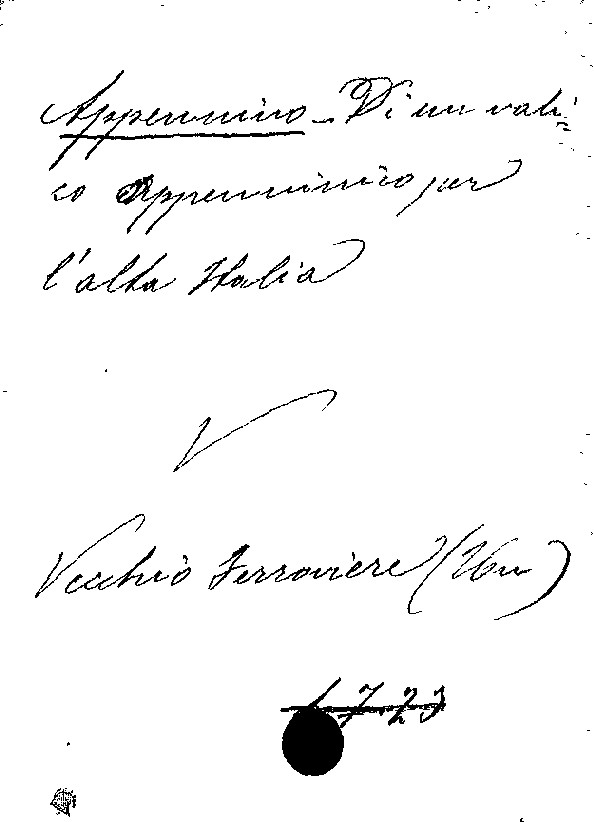 Appennino - Di un vali=
co Appenninico per
l'alta Italia
V
Vecchio Ferroviere (Un)
1723